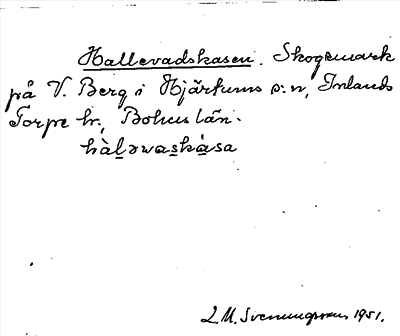 Hallevadskasen. Skogsmark
på V. Berg i Hjärtums s:n, Inlands
Torpe hr., Bohus län.
hàl̲əwas̲kàsa
L.M. Svenungsson 1951.